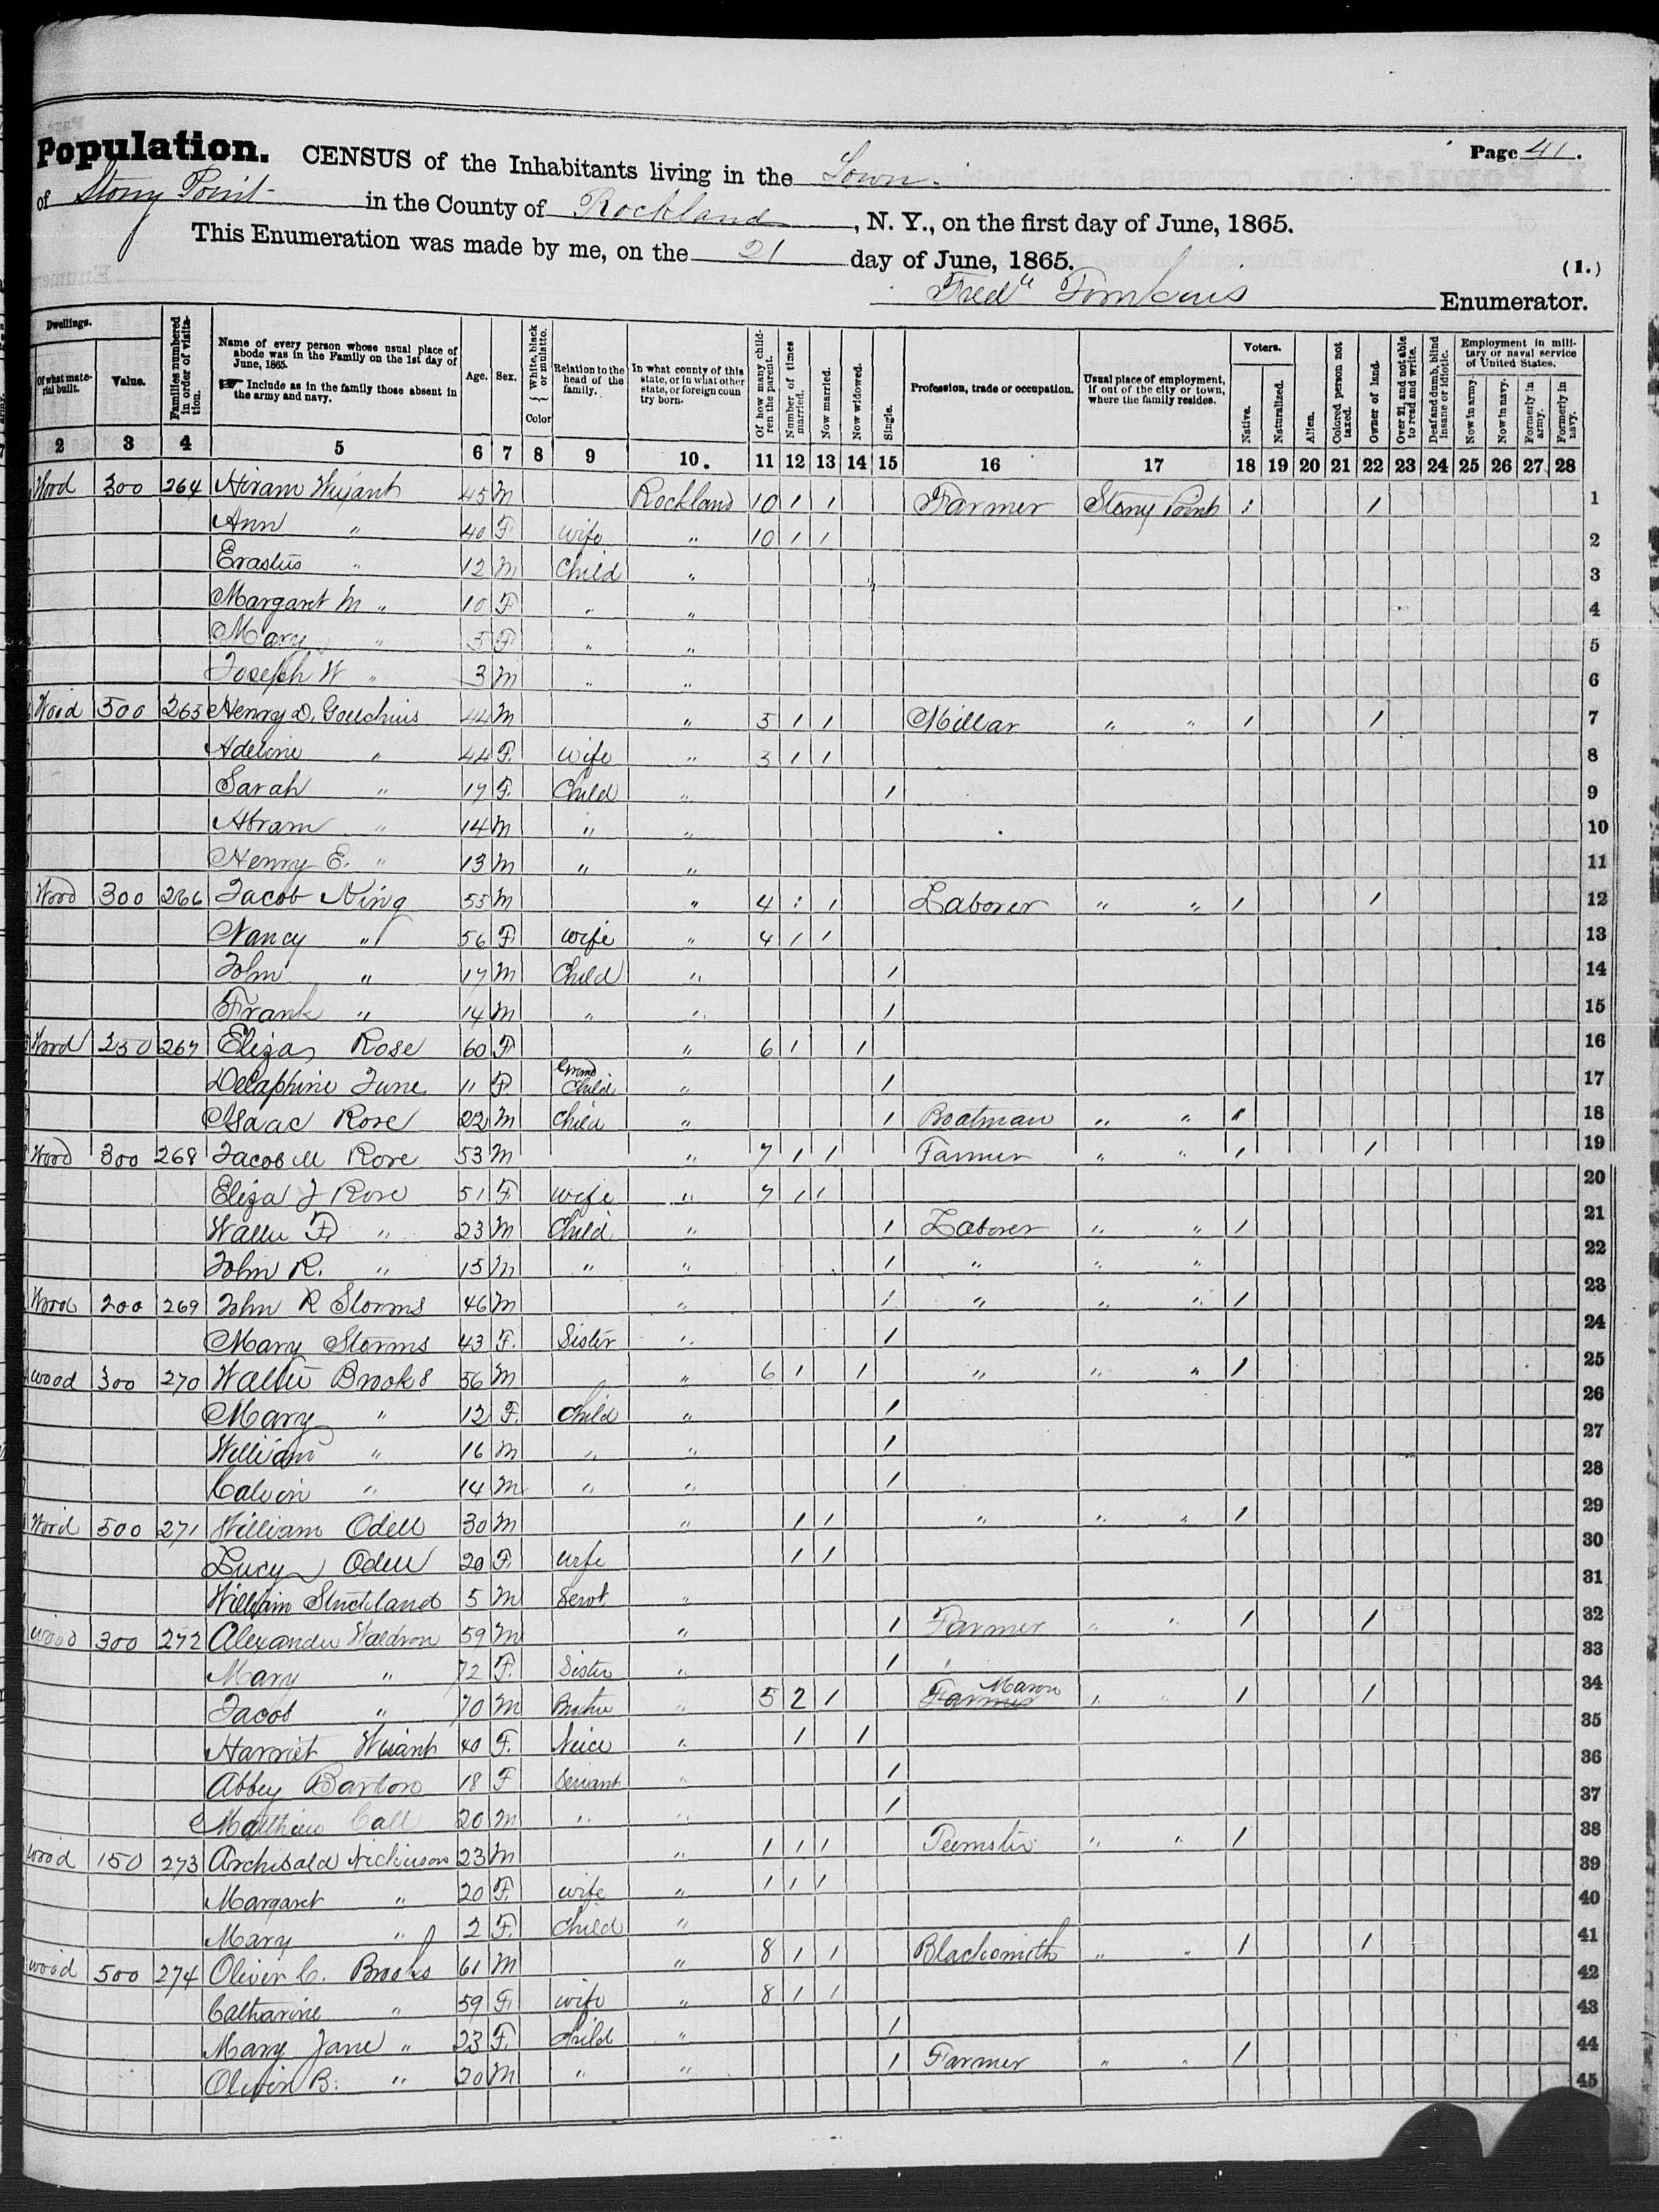 Population. CENSUS of the Inhabitants living in the Town Page 41.
of Stony Point in the County of Rockland, N. Y., on the first day of June, 1865.
This Enumeration was made by me, on the 21 day of June, 1865. (1.)
Fredk Tomkins Enumerator.
Dwellings. Of what material built. Value. Families numbered in order of visitation. Name of every person whose usual place of abode was in the Family on the 1st day of June, 1865. Include as in the family those absent in the army and navy. Age. Sex. White, black or mulatto. Color Relation to the head of the family. In what county of this state, or in what other state, or foreign coun try born. Of how many children the parent. Number of times married. Now married. Now widowed. Single. Profession, trade or occupation. Usual place of employment, if out of the city or town, where the family resides. Voters. Native. Naturalized. Alien. Colored person not taxed. Owner of land. Over 21, and not able to read and write. Deaf and dumb, blind insane or idiotic. Employment in military or naval service of United States. Now in army. Now in navy. Formerly in army. Formerly in navy.
2 3 4 5 6 7 8 9 10. 11 12 13 14 15 16 17 18 19 20 21 22 23 24 25 26 27 28
Wood 300 264 Hiram Wiyant 45 M Rockland 10 1 1 Farmer Stony Point 1 1 1
Ann " 40 F Wife " 10 1 1 2
Erastus " 12 M Child " 3
Margaret M " 10 F " " 4
Mary " 5 F " " 5
Joseph W " 3 M " " 6
Wood 500 265 Henry D. Goetchius 44 M " 3 1 1 Millar " " 1 1 7
Adeline " 44 F. Wife " 3 1 1 8
Sarah " 17 F. Child " 1 9
Abram " 14 M " " 10
Henry E. " 13 M " " 11
Wood 300 266 Jacob King 55 M " 4 1 1 Laborer " " 1 1 12
Nancy " 56 F. Wife " 4 1 1 13
John " 17 M Child " 1 14
Frank " 14 M " " 1 15
Wood 250 267 Eliza Rose 60 F " 6 1 1 16
Delaphine June 11 F. Grand Child " 1 17
Isaac Rose 22 M Child " 1 Boatman " " 1 18
Wood 300 268 Jacob M Rose 53 M " 7 1 1 Farmer " " 1 1 19
Eliza J Rose 51 F. Wife " 7 1 1 20
F " 23 M Child " 1 Laborer " " 1 21
John R. " 15 M " " 1 " " " 22
Wood 200 269 John R Storms 46 M " 1 " " " 1 23
Mary Storms 43 F. Sister " 1 24
Wood 300 270 Walter Brooks 56 M " 6 1 1 " " " 1 25
Mary " 12 F. Child " 1 26
William " 16 M " " 1 27
Calvin " 14 M " " 1 28
Wood 500 271 William Odell 30 M " 1 1 " " " 1 29
Lucy Odell 20 F. Wife 1 1 30
William Strickland 5 M Servt " 31
Wood 300 272 Alexander Waldron 59 M " 1 Farmer " " 1 1 32
Mary " 72 F. Sister " 1 33
Jacob " 70 M Brother " 5 2 1 Farmer Mason " " 1 1 34
Harriet Wiant 40 F. Neice " 1 1 35
Abbey Barton 18 F Servant " 1 36
Matthew Call 20 M " " 1 37
Wood 150 273 Archibald Dickinson 23 M " 1 1 1 Teemster " " 1 38
Margaret " 20 F. wife " 1 1 1 39
Mary " 2 F. Child " 40
Wood 500 274 Oliver C. Brooks 61 M " 8 1 1 Blacksmith " " 1 1 41
Catharine " 59 F. wife " 8 1 1 42
Mary Jane " 23 F. child " 1 43
Oliver B. " 20 M " " 1 Farmer " " 1 44
45